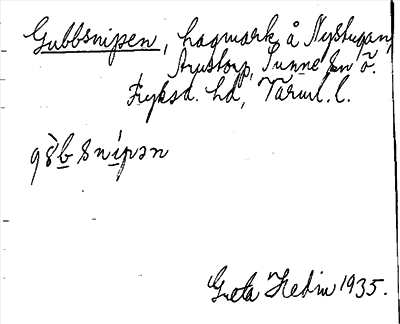 Gubbsnipen, hagmark å Nystugan,
Arustorp, Sunne sn ö.
Fryksd. hd, Värml. l.
gòb snípən
Greta Hedin 1935.